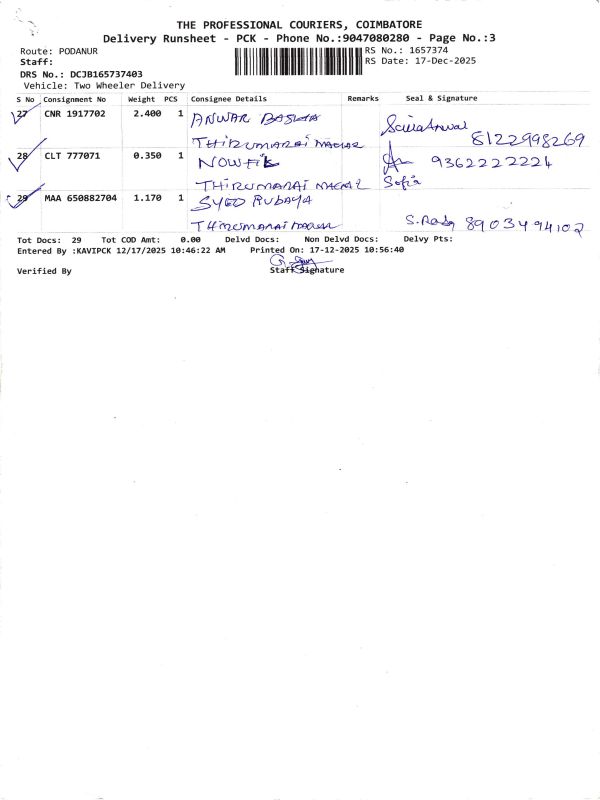 THE PROFESSIONAL COURIERS, COIMBATORE
Delivery Runsheet - PCK - Phone No.:9047080280 - Page No.:3
Route: PODANUR RS No.: 1657374
Staff: RS Date: 17-Dec-2025
DRS No.: DCJB165737403
Vehicle: Two Wheeler Delivery
S No Consignment No Weight PCS Consignee Details Remarks Seal & Signature
27 CNR 1917702 2.400 1 ANWAR BASHA
THIRUMARAI NAGAR 8122998269
28 CLT 777071 0.350 1 NOWFIK 9362222224
THIRUMARAI NAGAR Sofia
29 MAA 650882704 1.170 1 SYED RUBAYA
THIRUMARAI NAGAR 8903494102
Tot Docs: 29 Tot COD Amt: 0.00 Delvd Docs: Non Delvd Docs: Delvy Pts:
Entered By :KAVIPCK 12/17/2025 10:46:22 AM Printed On: 17-12-2025 10:56:40
Verified By Staff Signature